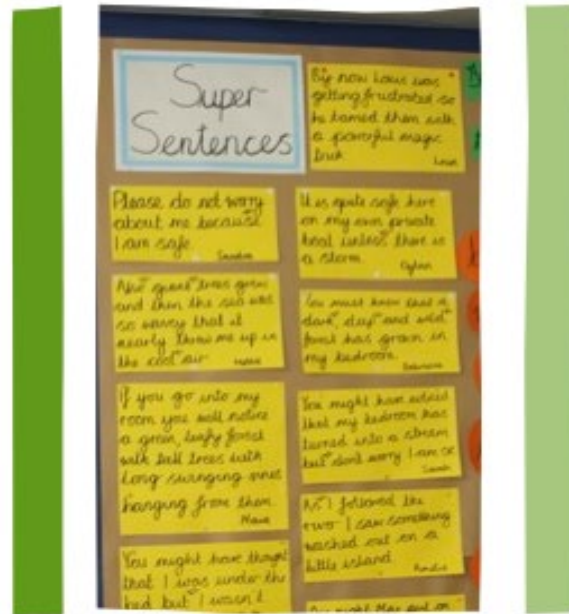 Super
Sentences
By now Louis was
getting frustrated so
he tamed them with
a powerful magic
trick
Please do not worry
about me because
I am safe.
It is quite safe here
on my own private
boat unless there is
a storm.
Also giant trees grew
and then the sea was
so wavey that it
nearly threw me up in
the cool air
You must know that a
dark, deep and wild
forest has grown in
my bedroom.
If you go into my
room you will notice
a green, leafy forest
with tall trees with
long swinging vines
hanging from them
You might have noticed
that my bedroom has
turned into a stream
but don't worry I am ok
As I followed the
river I saw something
washed out on a
little island.
You might have thought
that I was under the
bed but I wasn't